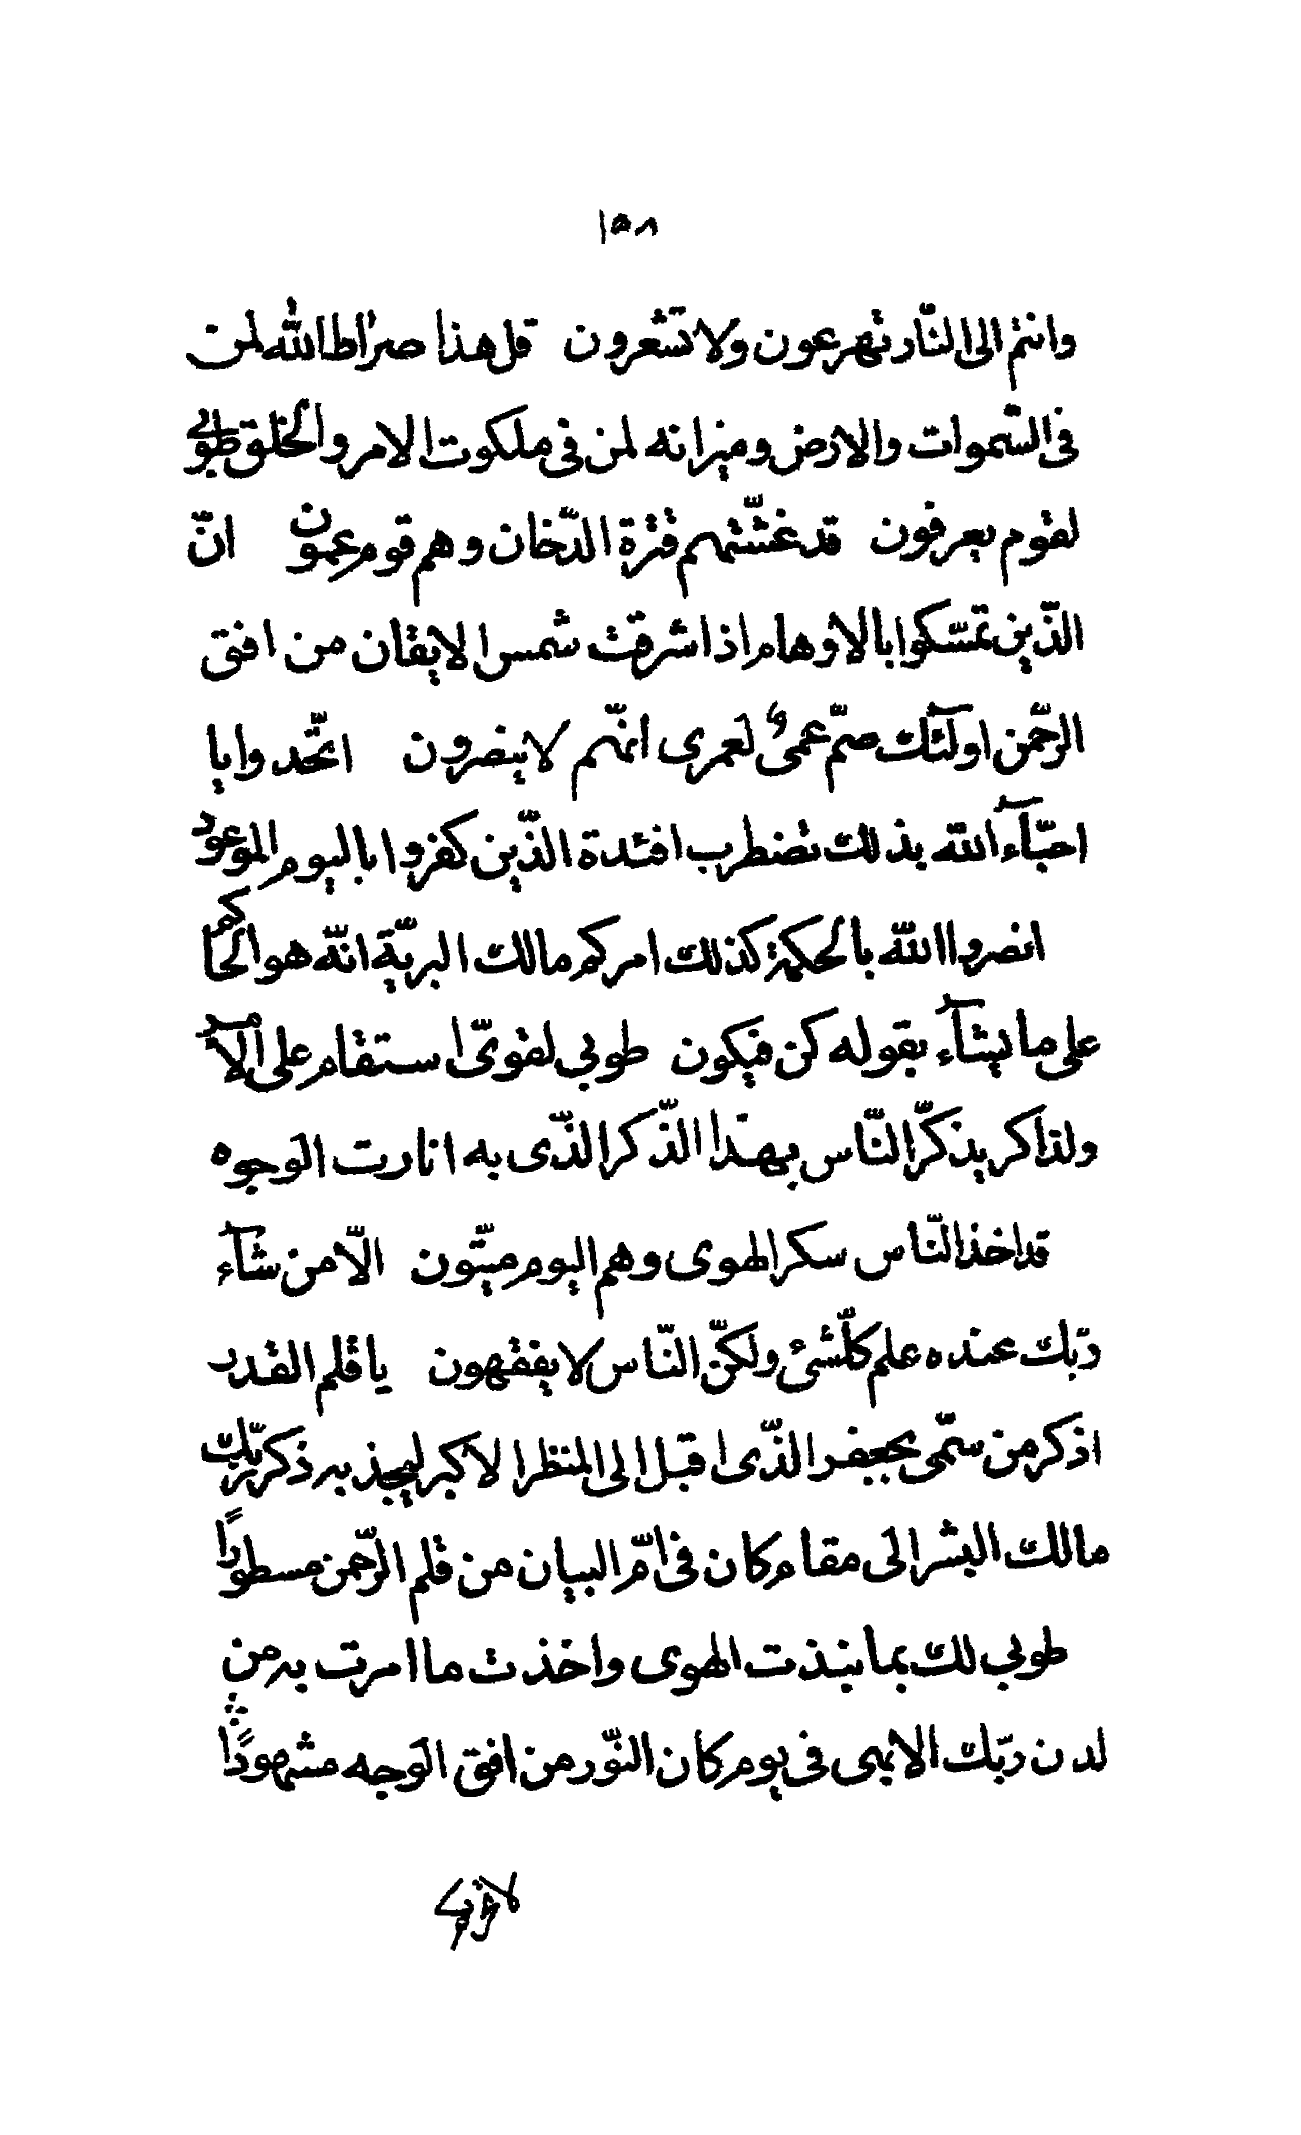 ١٥٨
وانتم الى النّار تهرعون ولا تشعرون قل هذا صراط الله لمن
فى السّموات والارض وميزانه لمن فى ملكوت الامر والخلق طوبى
لقوم يعرفون قد غشّتهم قترة الدّخان وهم قوم عمون انّ
الّذين تمسّكوا بالاوهام اذا اشرقت شمس الايقان من افق
الرّحمن اولٓئك صمّ عمىٌ لعمرى انّهم لا ينصرون اتّحدوا يا
احبّآء الله بذلك تضطرب افئدة الّذين كفروا باليوم الموعود
انصروا الله بالحكمة كذلك امركم مالك البريّة انّه هو الحاكم
على ما يشآء بقوله كن فيكون طوبى لقوىّ استقام على الامر
ولذاكر يذكّر النّاس بهذا الذّكر الّذى به انارت الوجوه
قد اخذ النّاس سكر الهوى وهم اليوم ميّتون الّا من شآء
ربّك عنده علم كلّشئ ولكنّ النّاس لا يفقهون يا قلم القدر
اذكر من سمّى بجعفر الّذى اقبل الى المنظر الاكبر ليجذبه ذكر ربّك
مالك البشر الى مقام كان فى امّ البيان من قلم الرّحمن مسطورًا
طوبى لك بما نبذت الهوى واخذت ما امرت به من
لدن ربّك الابهى فى يوم كان النّور من افق الوجه مشهودًا